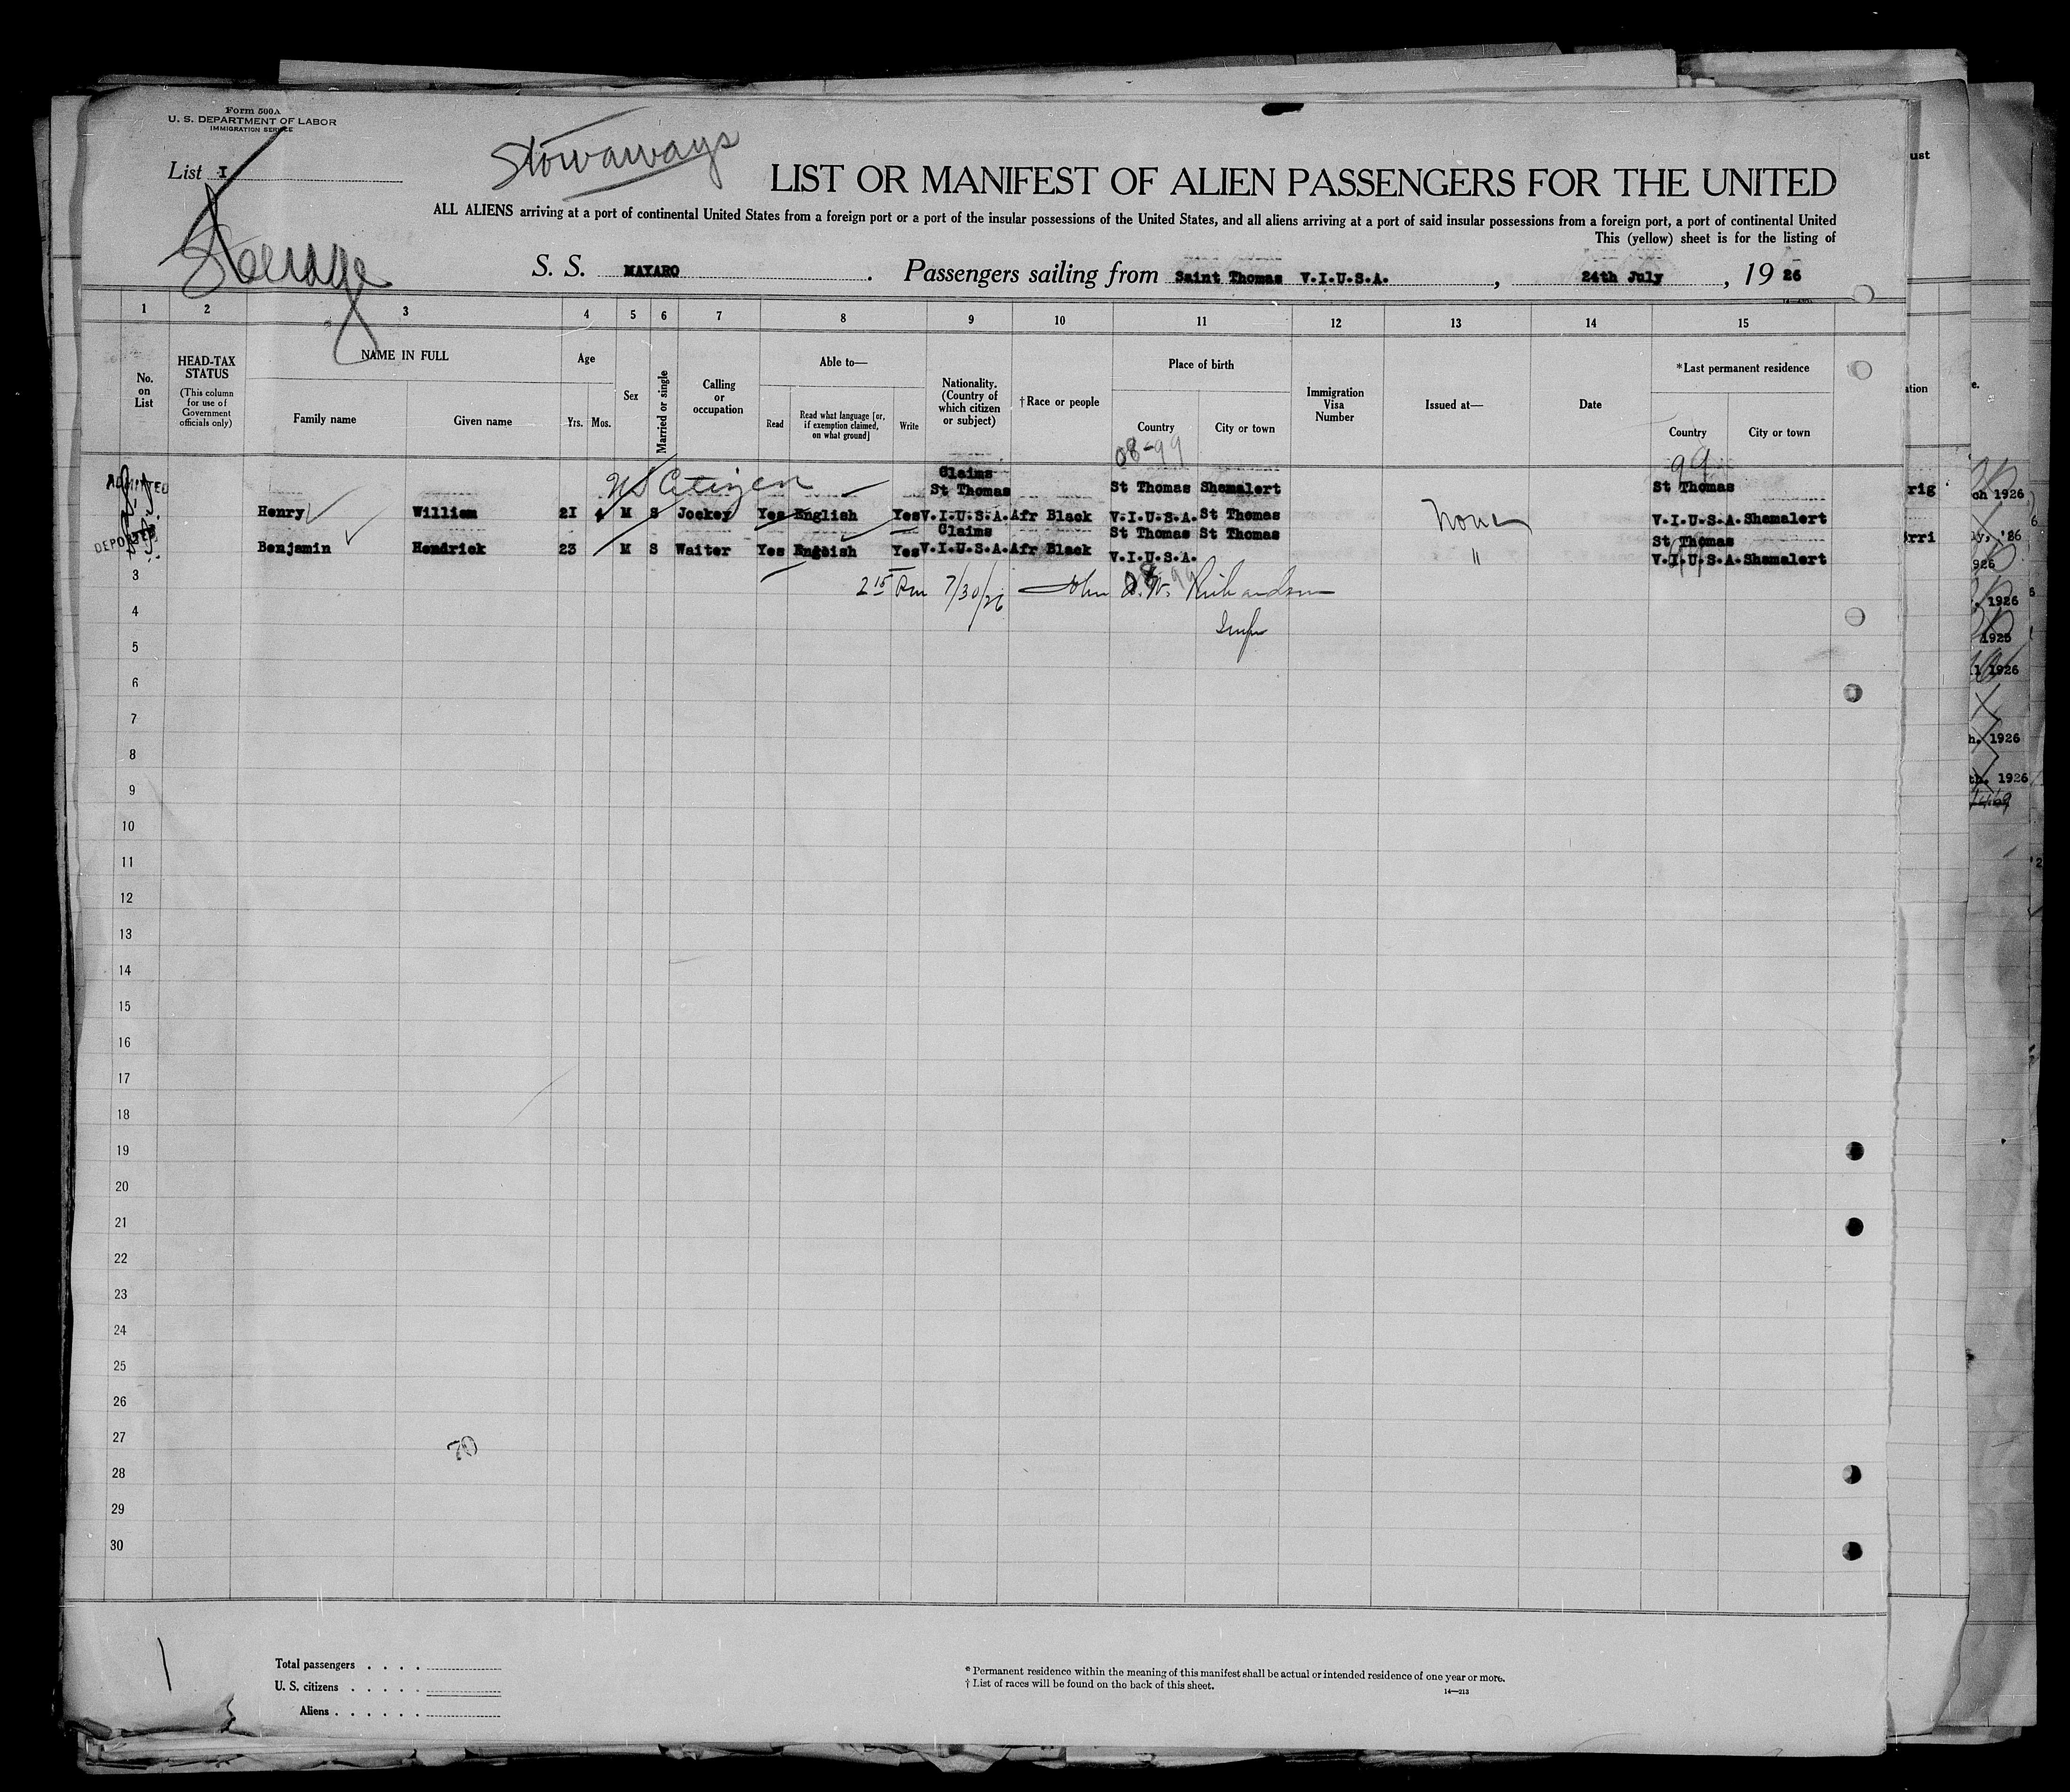 Form 500A
U. S. DEPARTMENT OF LABOR
IMMIGRATION SERVICE
List I
Stowaways
LIST OR MANIFEST OF ALIEN PASSENGERS FOR THE UNITED
ALL ALIENS arriving at a port of continental United States from a foreign port or a port of the insular possessions of the United States, and all aliens arriving at a port of said insular possessions from a foreign port, a port of continental United
This (yellow) sheet is for the listing of
S. S. MAYARO . Passengers sailing from Saint Thomas V.I.U.S.A. , 24th July , 19 26
1 2 3 4 5 6 7 8 9 10 11 12 13 14 15
No. on List
HEAD-TAX STATUS
(This column for use of Government officials only)
NAME IN FULL
Family name Given name
Age
Yrs. Mos.
Sex
Married or single
Calling or occupation
Able to—
Read Read what language [or, if exemption claimed, on what ground] Write
Nationality. (Country of which citizen or subject)
†Race or people
Place of birth
Country City or town
Immigration Visa Number
Issued at—
Date
*Last permanent residence
Country City or town
08-99 99
ADMITTED US Citizen Claims
St Thomas St Thomas Shamalert St Thomas
Henry William 21 4 M S Jockey Yes English Yes V.I.U.S.A. Afr Black V.I.U.S.A. St Thomas None V.I.U.S.A. Shamalert
DEPORTED Claims St Thomas St Thomas St Thomas
Benjamin Hendrick 23 M S Waiter Yes English Yes V.I.U.S.A. Afr Black V.I.U.S.A. " V.I.U.S.A. Shamalert
3
2 15 Pm 7/30/26 John W. Richardson
4
Insp
5
6
7
8
9
10
11
12
13
14
15
16
17
18
19
20
21
22
23
24
25
26
27
70
28
29
30
Total passengers . . . .
U. S. citizens . . . . .
Aliens . . . . . .
* Permanent residence within the meaning of this manifest shall be actual or intended residence of one year or more.
† List of races will be found on the back of this sheet.
14—213